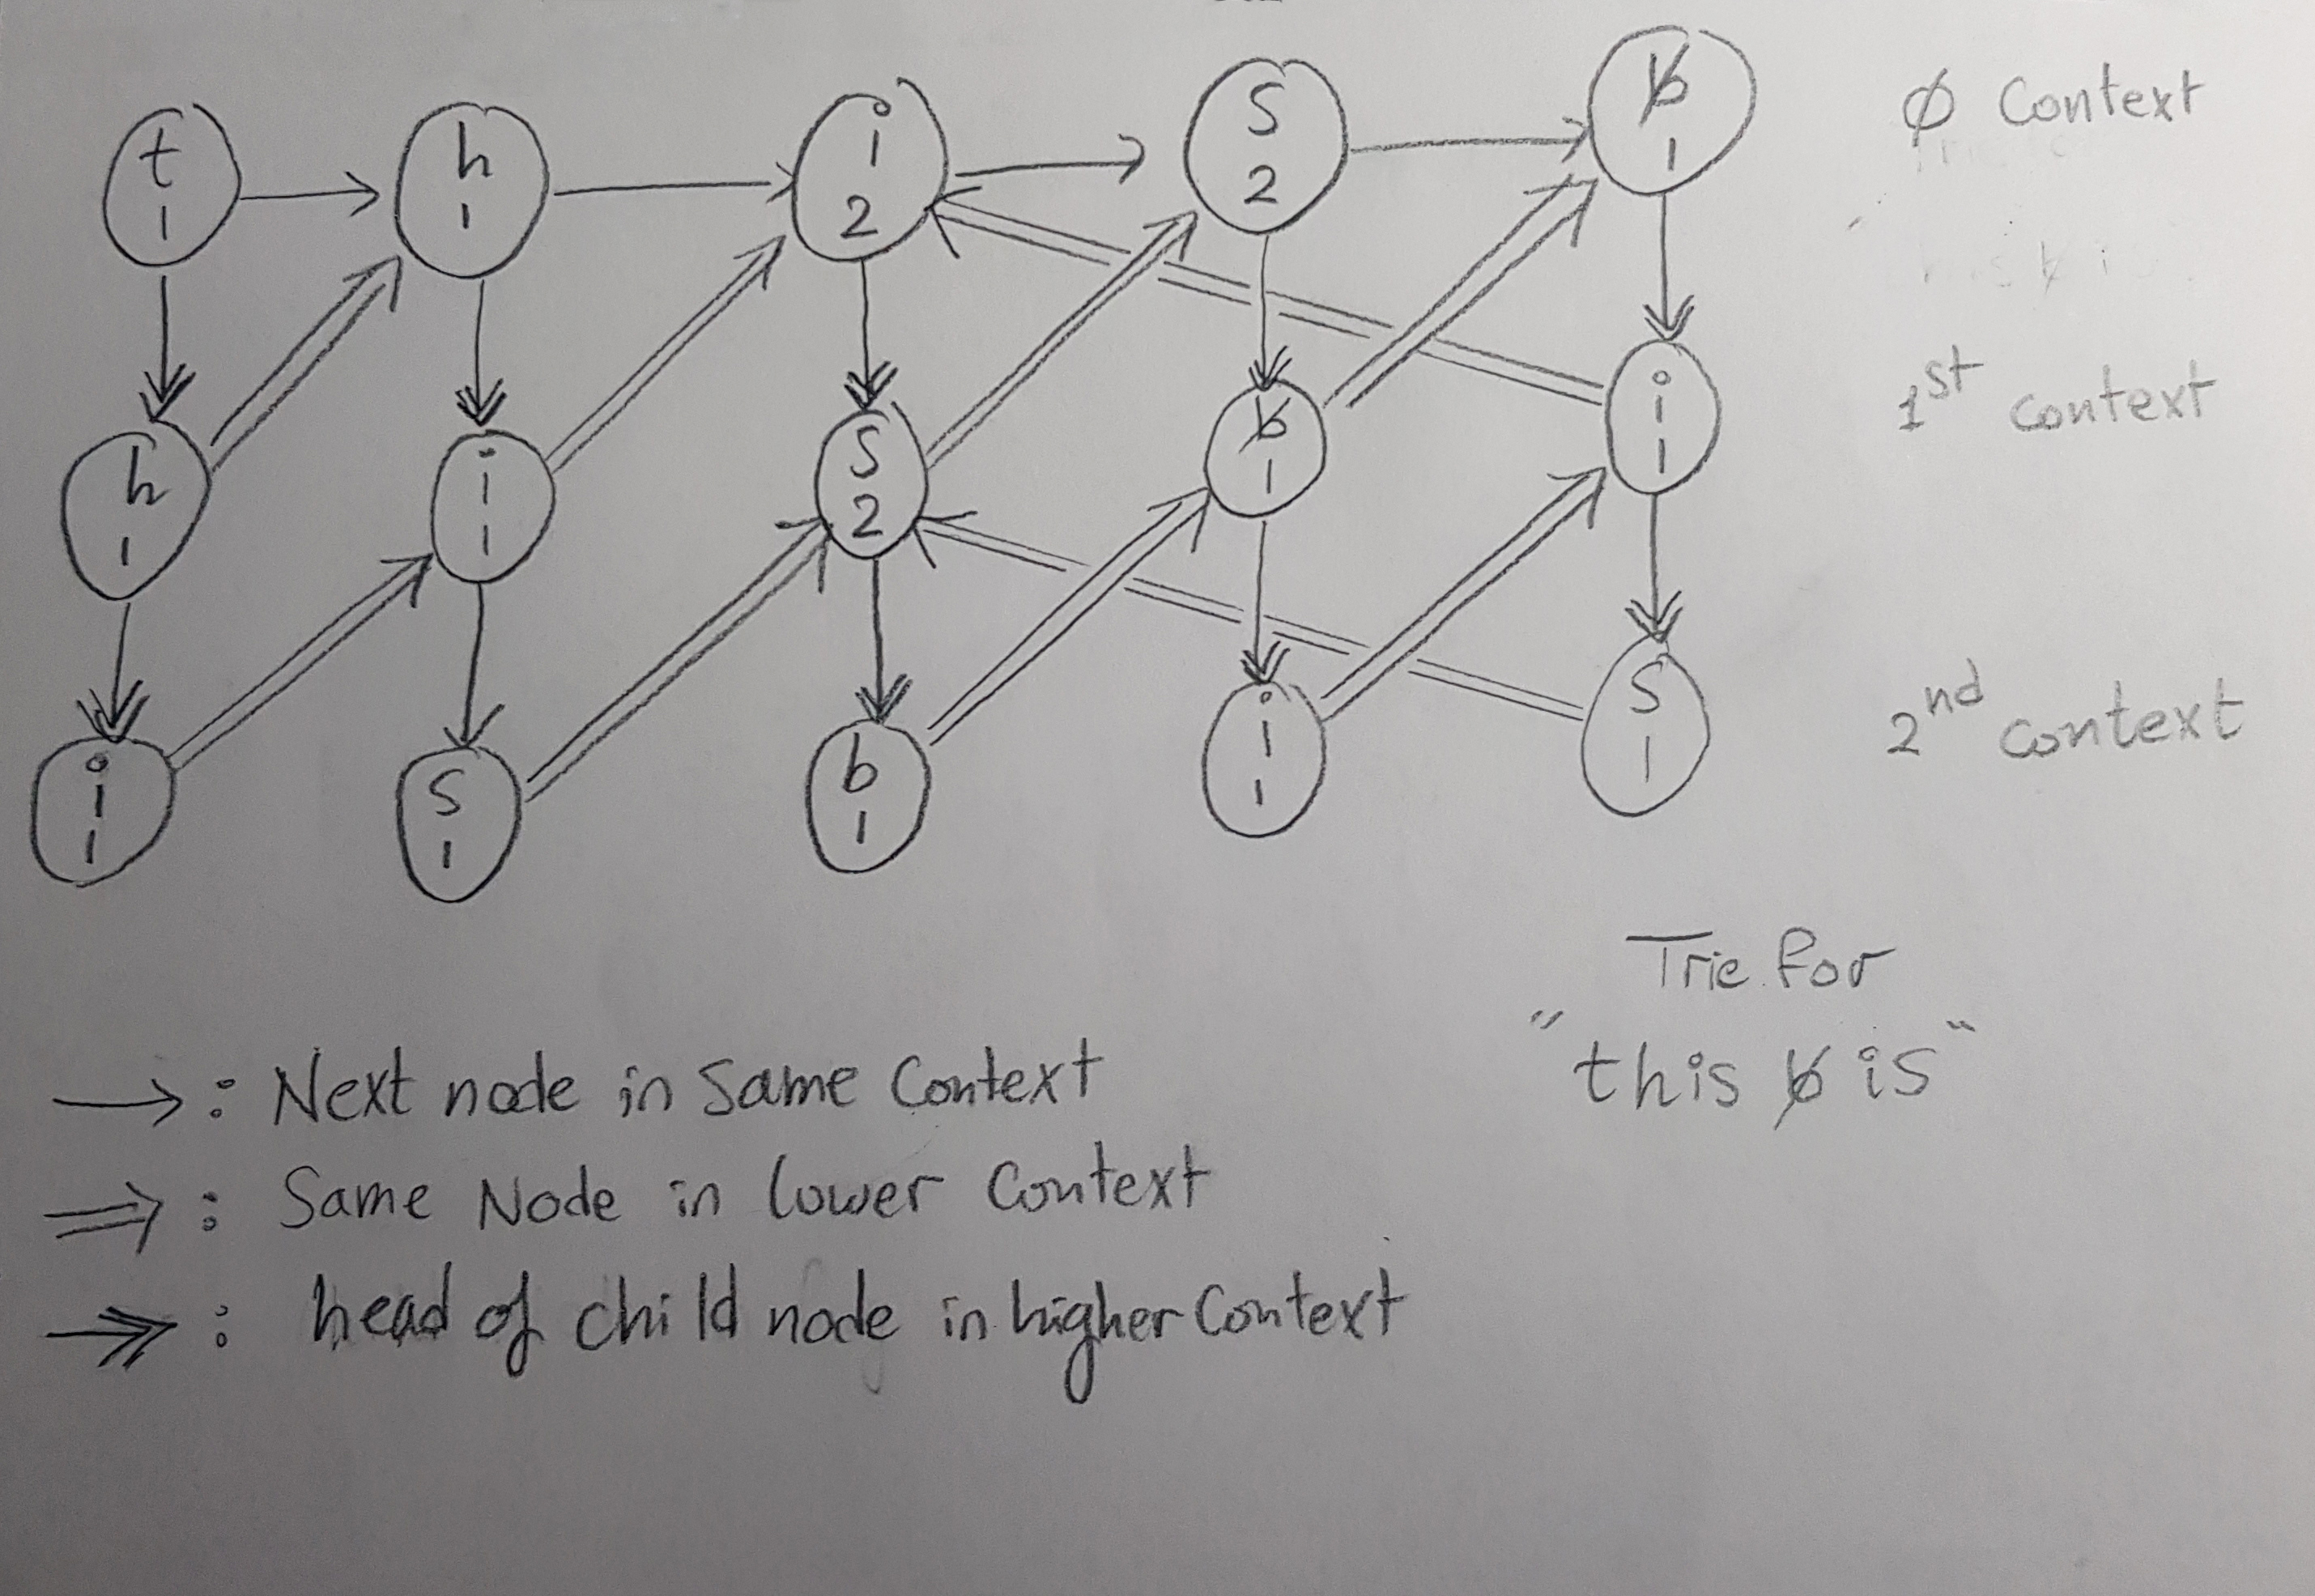 t h i S b̸ Ø Context
1 1 2 2 1
h i S b̸ i 1st context
1 1 2 1 1
i S b i S 2nd context
1 1 1 1 1
Trie for
"this b̸ is"
→ : Next node in Same Context
⇒ : Same Node in lower Context
↠ : head of child node in higher Context